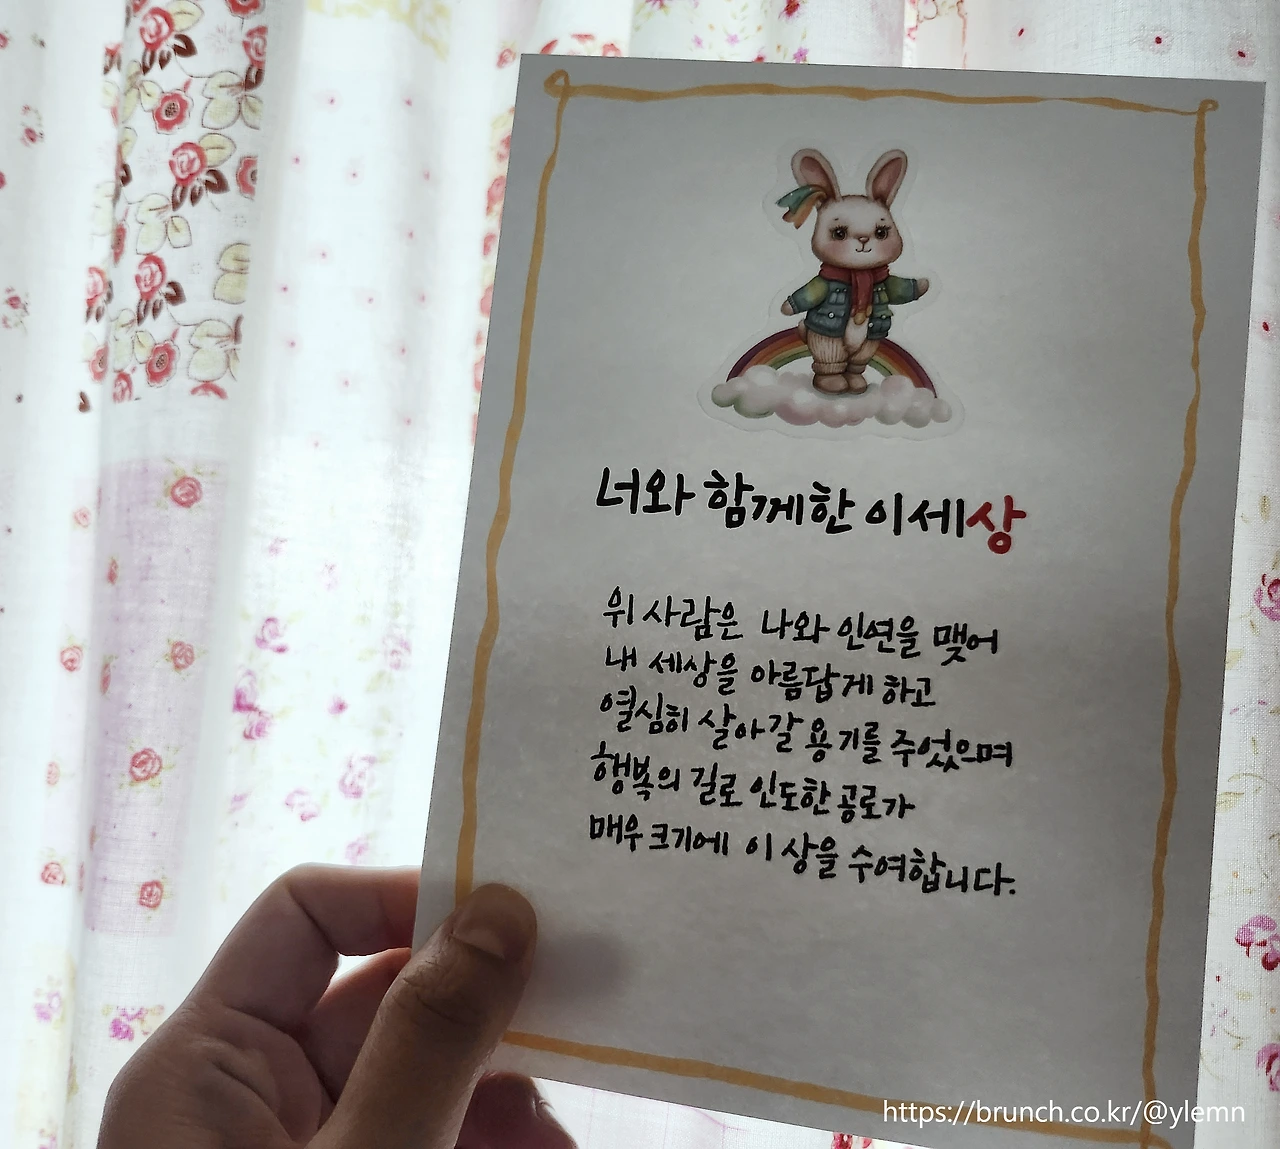 너와 함께한 이 세상
위 사람은 나와 인연을 맺어
내 세상을 아름답게 하고
열심히 살아갈 용기를 주었으며
행복의 길로 인도한 공로가
매우 크기에 이 상을 수여합니다.
https://brunch.co.kr/@ylemn